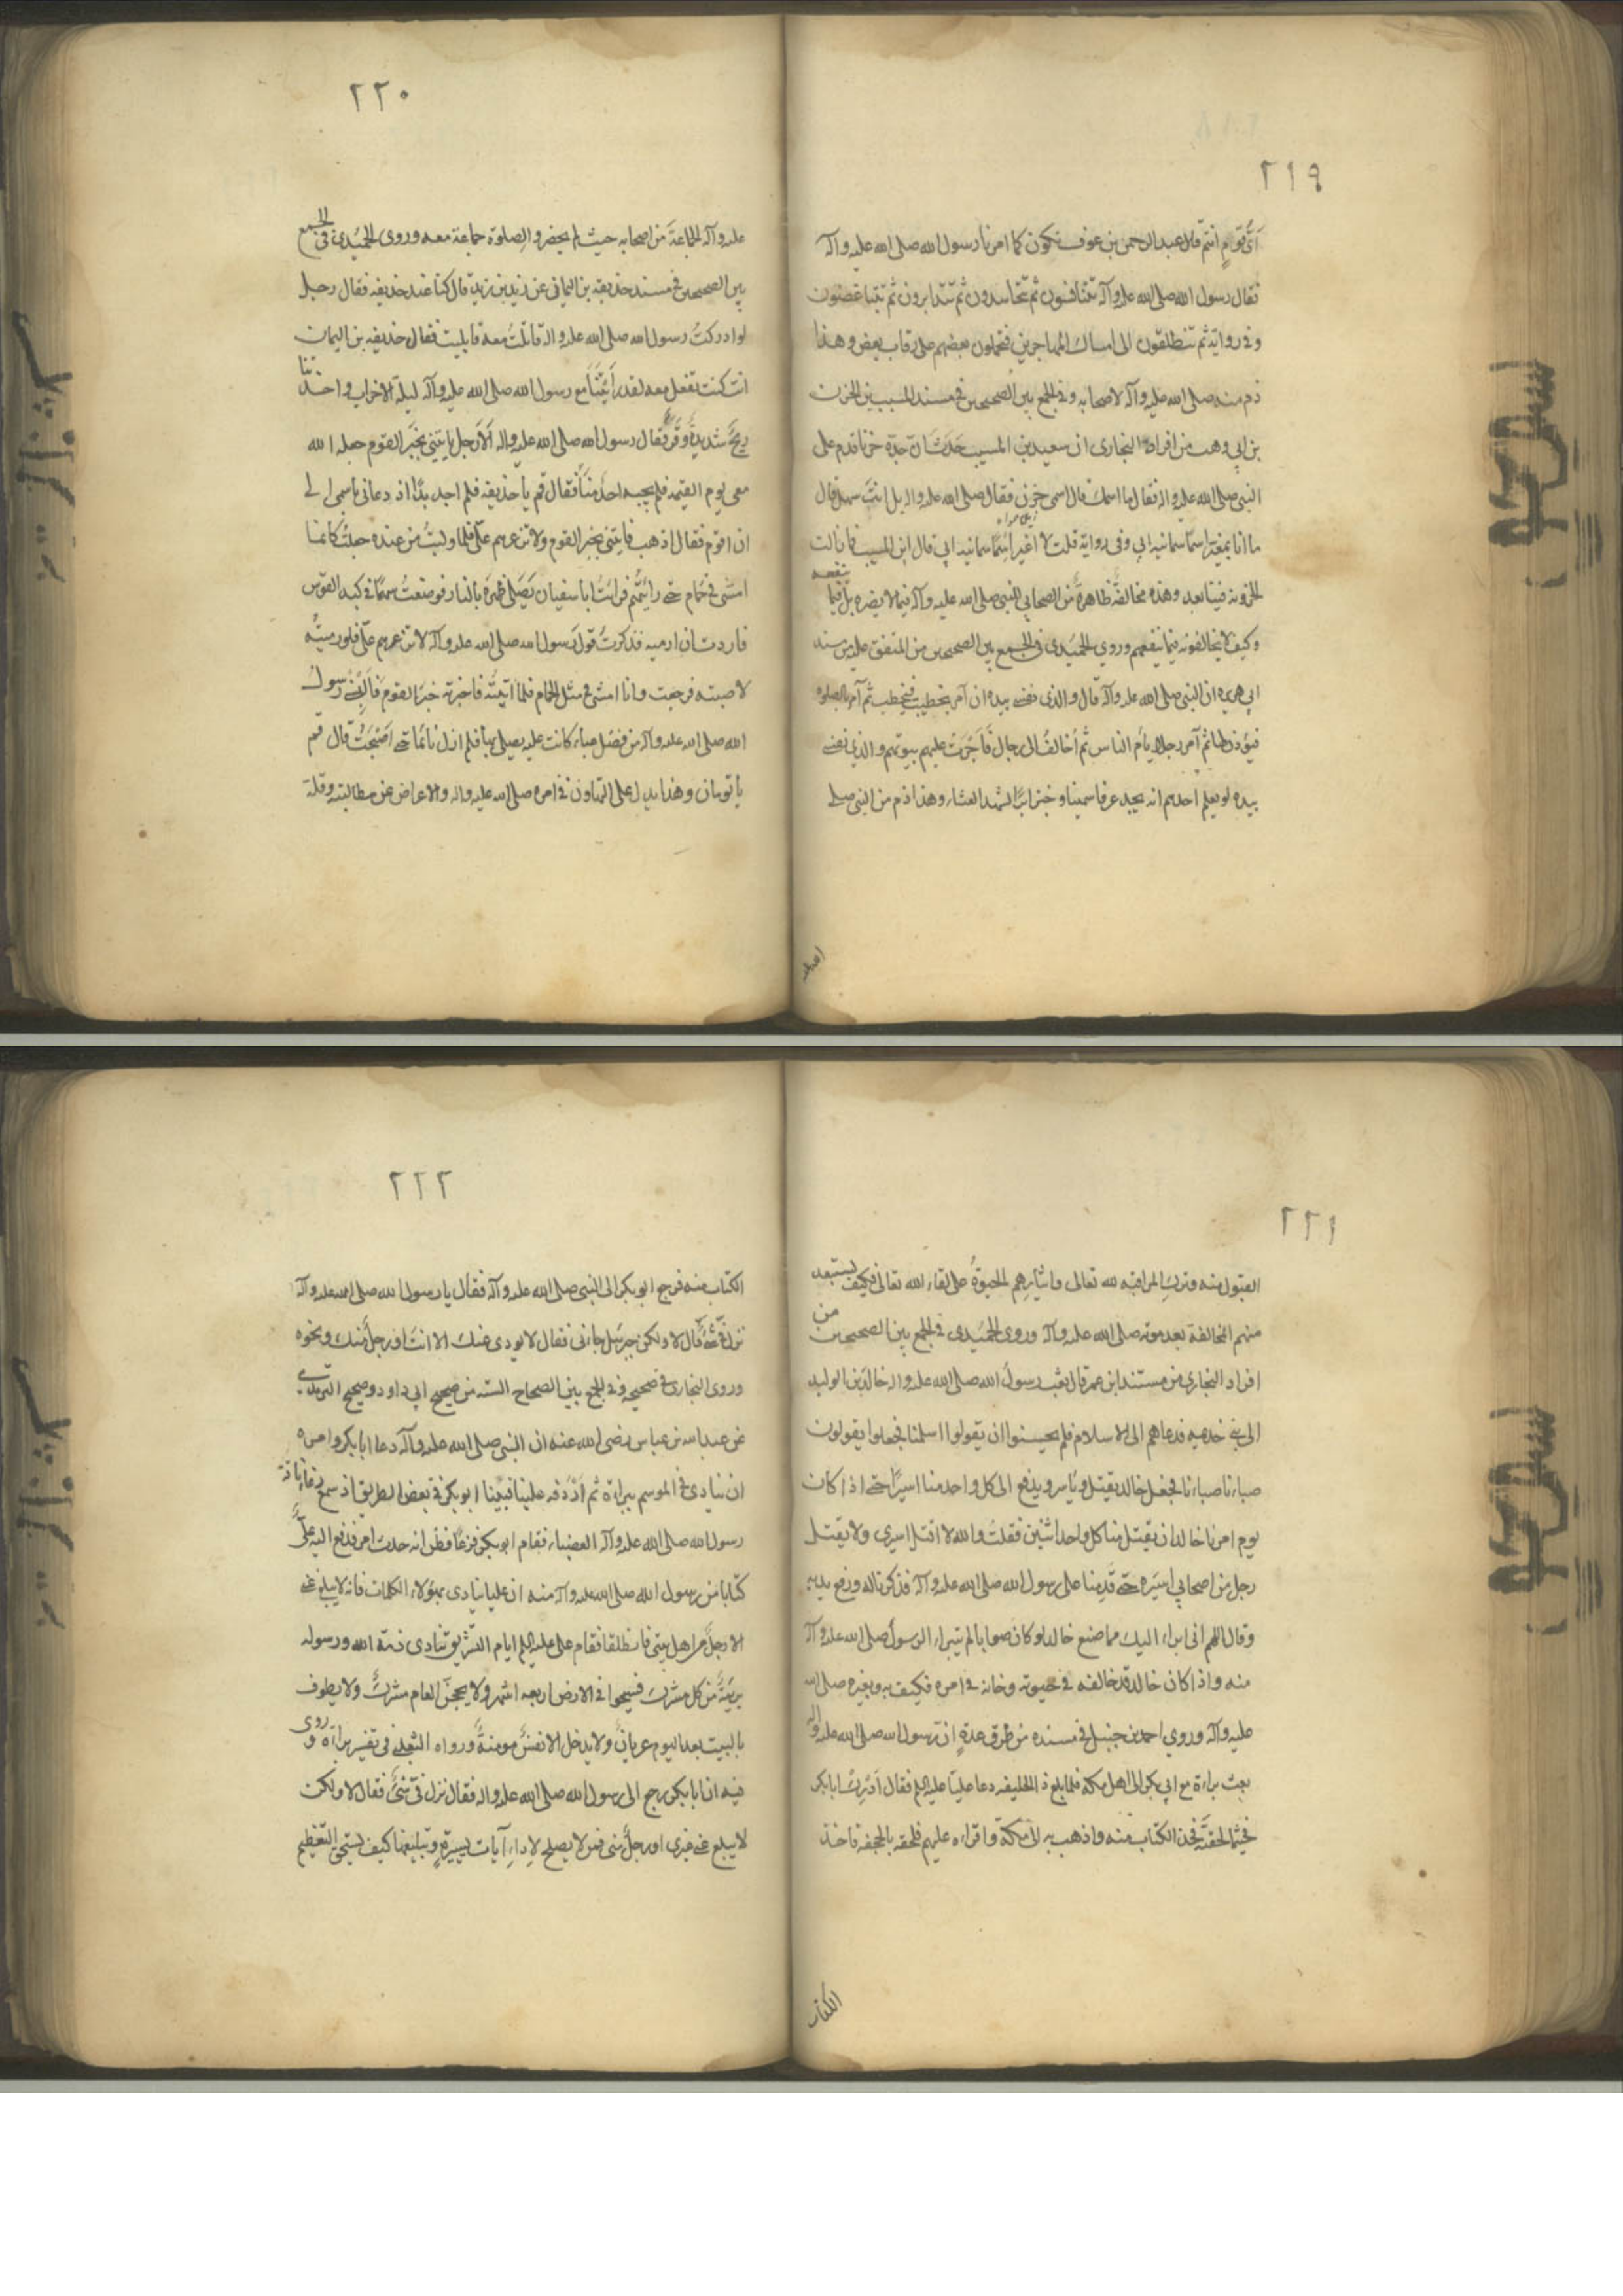 ٢١٩
اَيُّ قومٍ انتم قال عبد الرحمن بن عوف نكون كما امرنا رسول الله صلى الله عليه وآله
فقال رسول الله صلى الله عليه وآله تتنافسون ثم تتحاسدون ثم تتدابرون ثم تتباغضون
وفي رواية ثم تنطلقون الى مساكن المهاجرين فتحملون بعضهم على رقاب بعض وهذا
ذم منه صلى الله عليه وآله لاصحابه وفي الجمع بين الصحيحين في مسند المسيب بن الحزن
بن ابي وهب من افراد البخاري ان سعيد بن المسيب حدث ان جده حزنا قدم على
النبي صلى الله عليه واله فقال ما اسمك قال اسمي حزن فقال صلى الله عليه واله بل انت سهل قال
ما انا بمغير اسما سمانيه ابي وفي رواية قلت لا اغير اسما سمانيه ابي قال ابن المسيب فما زالت
الحزونة فينا بعد وهذه مخالفة ظاهرة من الصحابي للنبي صلى الله عليه وآله فيما لا يضره بل فيما ينفعه
وكيف لا يخالفونه فيما ينفعهم وروي الحميدي في الجمع بين الصحيحين من المتفق عليه من مسند
ابي هريره ان النبي صلى الله عليه وآله قال والذي نفسي بيده ان آمر بحطب فيحطب ثم آمر بالصلوة
فيؤذن لها ثم آمر رجلا يأم الناس ثم أخالف الى رجال فاحرق عليهم بيوتهم والذي نفسي
بيده لو يعلم احدهم انه يجد عرقا سمينا وخبز ابرا لشهد العشاء وهذا ذم من النبي صلى
٢٢٠
عليه وآله لجماعة من اصحابه حيث لم يحضروا الصلوة جماعة معه وروى الحميدي في الجمع
بين الصحيحين في مسند حذيفه بن اليماني عن زيد بن زيد قال كنا عند حذيفه فقال رجل
لو ادركت رسول الله صلى الله عليه واله قاتلت معه فابليت فقال حذيفه بن اليمان
انت كنت تفعل معه لقد رأيتنا مع رسول الله صلى الله عليه وآله ليلة الاحزاب واخذتنا
ريح شديدة وقر فقال رسول الله صلى الله عليه واله الا رجل يأتيني بخبر القوم جعله الله
معي يوم القيمه فلم يجبه احد منا فقال قم يا حذيفه فلم اجد بدا اذ دعاني باسمي الى
ان اقوم فقال اذهب فايتني بخبر القوم ولا تذعرهم علي فلما وليت من عنده جعلت كانما
امشى في حمام حتى رايتهم فرأيت ابا سفيان يصلي ظهره بالنار فوضعت سهما في كبد القوس
فاردت ان ارميه فذكرت قول رسول الله صلى الله عليه وآله لا تذعرهم علي فلو رميته
لاصبته فرجعت وانا امشى في مثل الحمام فلما اتيته فاخبرته خبر القوم فالبسني رسول
الله صلى الله عليه وآله من فضل عباء كانت عليه يصلي بها فلم ازل نائما حتى اصبحت قال قم
يا نومان وهذا يدل على التهاون في امره صلى الله عليه واله والاعراض عن مطالبته وقلة
٢٢١
القبول منه وترك المراقبه لله تعالى وايثارهم للحيوة على لقاء الله تعالى فكيف يستبعد
منهم المخالفة بعد موته صلى الله عليه وآله وروى الحميدي في الجمع بين الصحيحين من
افراد البخاري من مسند ابن عمر قال بعث رسول الله صلى الله عليه واله خالد بن الوليد
الى بني خذيمه فدعاهم الى الاسلام فلم يحسنوا ان يقولوا اسلمنا فجعلوا يقولون
صبانا صبانا فجعل خالد يقتل وياسر ويدفع الى كل واحد منا اسيرا حتى اذا كان
يوم امرنا خالد ان يقتل منا كل واحد اثنين فقلت والله لا اقتل اسيري ولا يقتل
رجل من اصحابي اسيره حتى قدمنا على رسول الله صلى الله عليه وآله فذكرنا له ورفع يديه
وقال اللهم اني ابراء اليك مما صنع خالد لو كان صوابا لم يتبراء الرسول صلى الله عليه وآله
منه واذا كان خالد قد خالفه في حيوته وخانه في امره فكيف به وبغيره صلى الله
عليه وآله وروي احمد بن حنبل في مسنده من طرق عدة ان رسول الله صلى الله عليه واله
بعث براءة مع ابي بكر الى اهل مكة فلما بلغ ذا الحليفه دعا عليا عليه السلم فقال ادرك ابا بكر
فحيثما لحقته فخذ الكتاب منه واذهب به الى مكة واقراه عليهم فلحقه بالجحفة فاخذ
الكتاب
٢٢٢
الكتاب منه فرجع ابو بكر الى النبي صلى الله عليه وآله فقال يا رسول الله صلى الله عليه وآله
نزل في شئ قال لا ولكن جبرئيل جاءني فقال لا يودي عنك الا انت او رجل منك ونحوه
وروى البخارى في صحيحه وفي الجمع بين الصحاح السته من صحيح ابي داود وصحيح الترمدي
عن عبد الله بن عباس رضى الله عنه ان النبي صلى الله عليه وآله دعا ابا بكر وامره
ان ينادى في الموسم ببراءة ثم اردفه عليا فبينا ابو بكر في بعض الطريق اذ سمع رغا ناقة
رسول الله صلى الله عليه وآله العضباء فقام ابو بكر فزعا فظن انه حدث امر فدفع اليه علي
كتابا من رسول الله صلى الله عليه وآله منه ان عليا ينادى بهؤلاء الكلمات فانه لا يبلغ عني
الا رجل من اهل بيتي فانطلقا فقام علي عليه السلم ايام التشريق ينادى ذمة الله ورسوله
بريئة من كل مشرك فسيحوا في الارض اربعه اشهر ولا يحجن العام مشرك ولا يطوف
بالبيت بعد اليوم عريان ولا يدخل الا نفس مومنة ورواه الثعلبي في تفسير براءة وروى
فيه ان ابا بكر رجع الى رسول الله صلى الله عليه واله فقال نزل في شئ فقال لا ولكن
لا يبلغ عني غيرى او رجل مني فمن لا يصلح لاداء آيات يسيرة وتبليغها كيف يستحق التعظيم